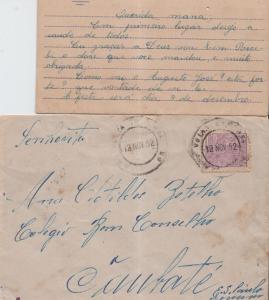 Querida mana.
Em primeiro lugar desejo a
saude de todos.
Eu graças a Deus vou bem. Rece-
bi o doce que voce mandou e muito
obrigada.
Como vai o Augusto José? está for-
te? que vontade de
A festa será dia 9 de dezembro.
Senhorita
13 NOV 52
13 NOV 52
Ana Clotildes Botelho
Colegio Bom Conselho
Taubaté
E. S. Paulo